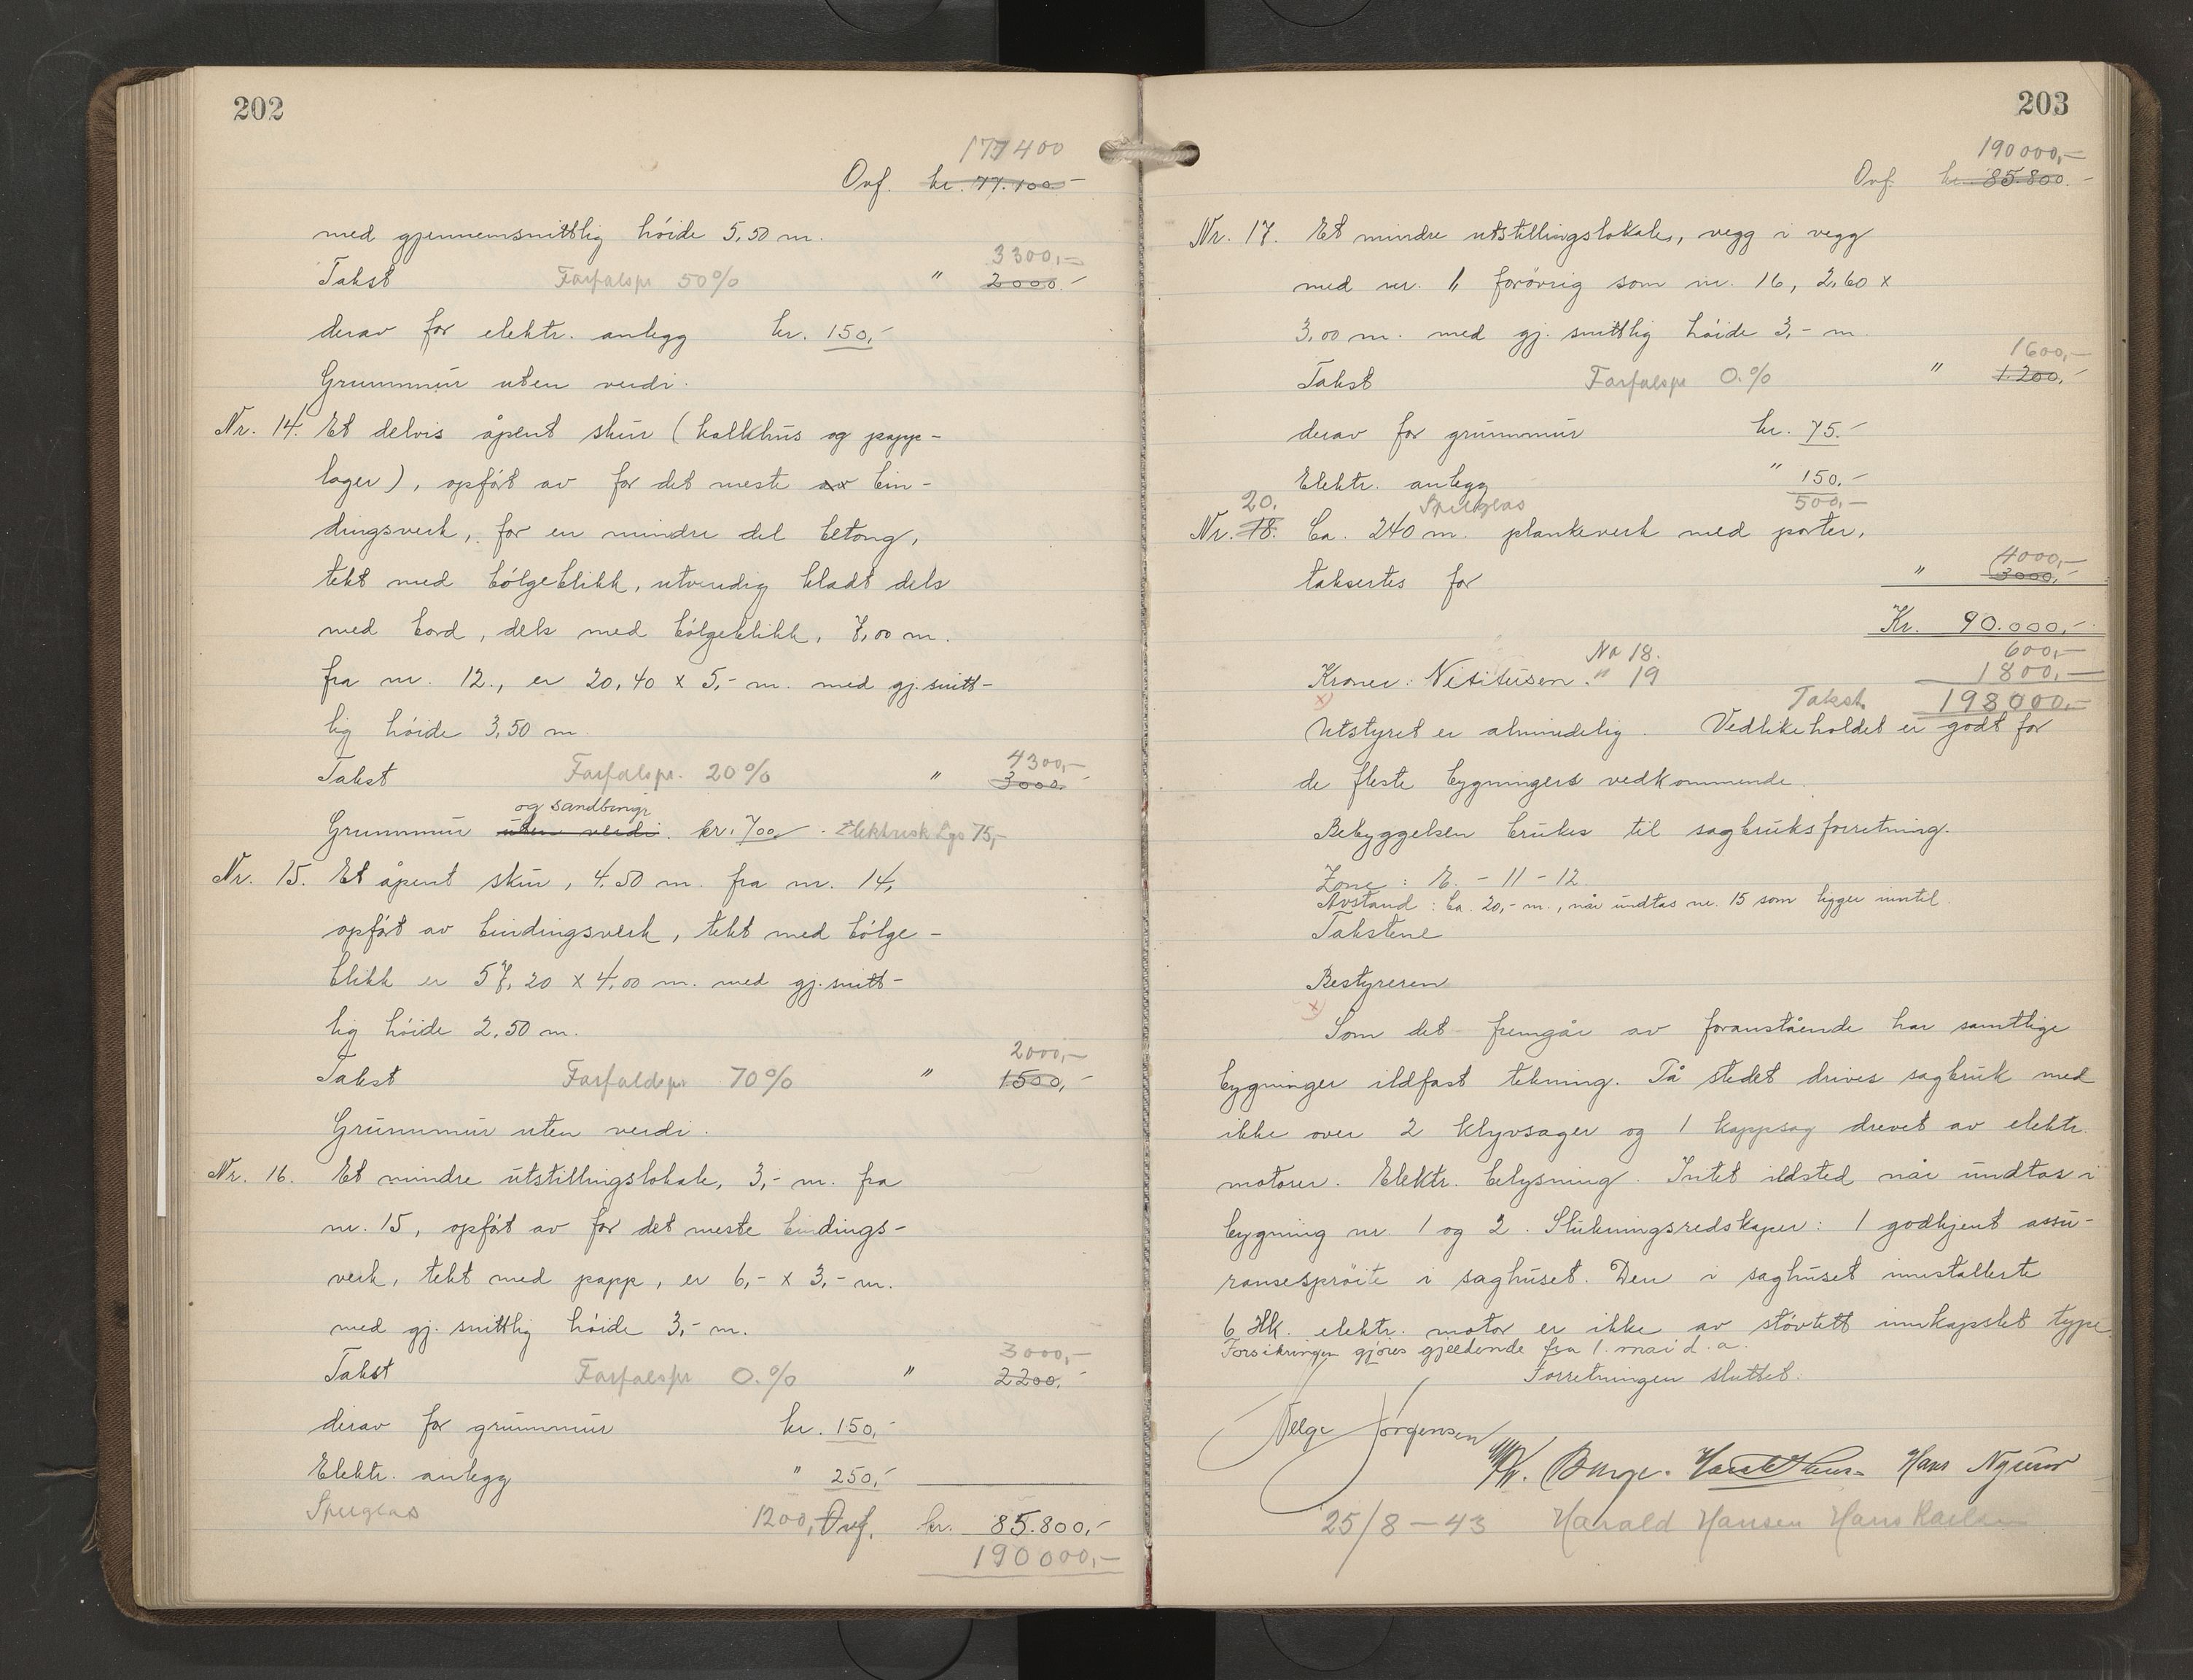 202
177400
Ovf. kr. 77.100.-
med gjennemsnittlig höide 5,50 m.
3300,-
Takst Forfalspr 50% " 2000.-
derav for elektr. anlegg kr. 150,-
Grunnmur uten verdi.
Nr. 14. Et delvis åpent skur (kalkhus og papp-
lager), opfört av for det meste av bin-
dingsverk, for en mindre del betong,
tekt med bölgeblikk, utvendig kledt dels
med bord, dels med bölgeblikk, 7,00 m.
fra nr. 12., er 20,40 x 5,- m. med gj.snitt-
lig höide 3,50 m.
4300,-
Takst Forfalspr. 20% " 3000.-
og sandbinge
Grunnmur uten verdi. kr. 700,- Elektrisk Lys 75,-
Nr. 15. Et åpent skur, 4.50 m. fra nr. 14,
opfört av bindingsverk, tekt med bölge-
blikk er 57,20 x 4,00 m. med gj.snitt-
lig höide 2,50 m.
2000,-
Takst Forfaldspr 70% " 1500,-
Grunnmur uten verdi.
Nr. 16. Et mindre utstillingslokale, 3,- m. fra
nr. 15, opfört av for det meste bindings-
verk, tekt med papp, er 6,- x 3,- m.
med gj. snittlig höide 3,- m.
3000,-
Takst Forfalspr 0.% " 2200.-
derav for grunnmur kr. 150,-
Elektr. anlegg " 250,-
Speilglas 1200,- Ovf. kr. 85.800,-
190000,-
203
190000,-
Ovf. kr. 85.800.-
Nr. 17. Et mindre utstillingslokale, vegg i vegg
med nr. 11 forövrig som nr. 16, 2,60 x
3,00 m. med gj. snittlig höide 3,- m.
1600,-
Takst Forfalspr 0.% " 1.200,-
derav for grunnmur kr. 75.-
Elektr. anlegg " 150.-
20. Speilglas 500,-
Nr. 18. Ca. 240 m. plankeverk med porter,
4000,-
takseres for " 3000,-
Kr. 90.000,-
No 18. 600,-
Kroner: Nititusen. " 19 1800,-
x) Takst 198000,-
Utstyret er almindelig. Vedlikeholdet er godt for
de fleste bygningers vedkommende.
Bebyggelsen brukes til sagbruksforretning.
Zone: E. - 11 - 12.
Avstand: Ca. 20,- m., når undtas nr. 15 som ligger inntil.
Takstene
Bestyreren
x)
Som det fremgår av foranstående har samtlige
bygninger ildfast tekning. På stedet drives sagbruk med
ikke over 2 klyvsager og 1 kappsag drevet av elektr.
motorer. Elektr. belysning. Intet ildsted når undtas i
bygning nr. 1 og 2. Slukningsredskaper: 1 godkjent assu-
ransespröite i saghuset. Den i saghuset innstallerte
6 Hk. elektr. motor er ikke av stövtett innkapslet type.
Forsikringen gjöres gjeldende fra 1. mai d.a.
Forretningen sluttet.
Helge Jörgensen Hans
25/8-43 Harald Hansen Hans Karlsen